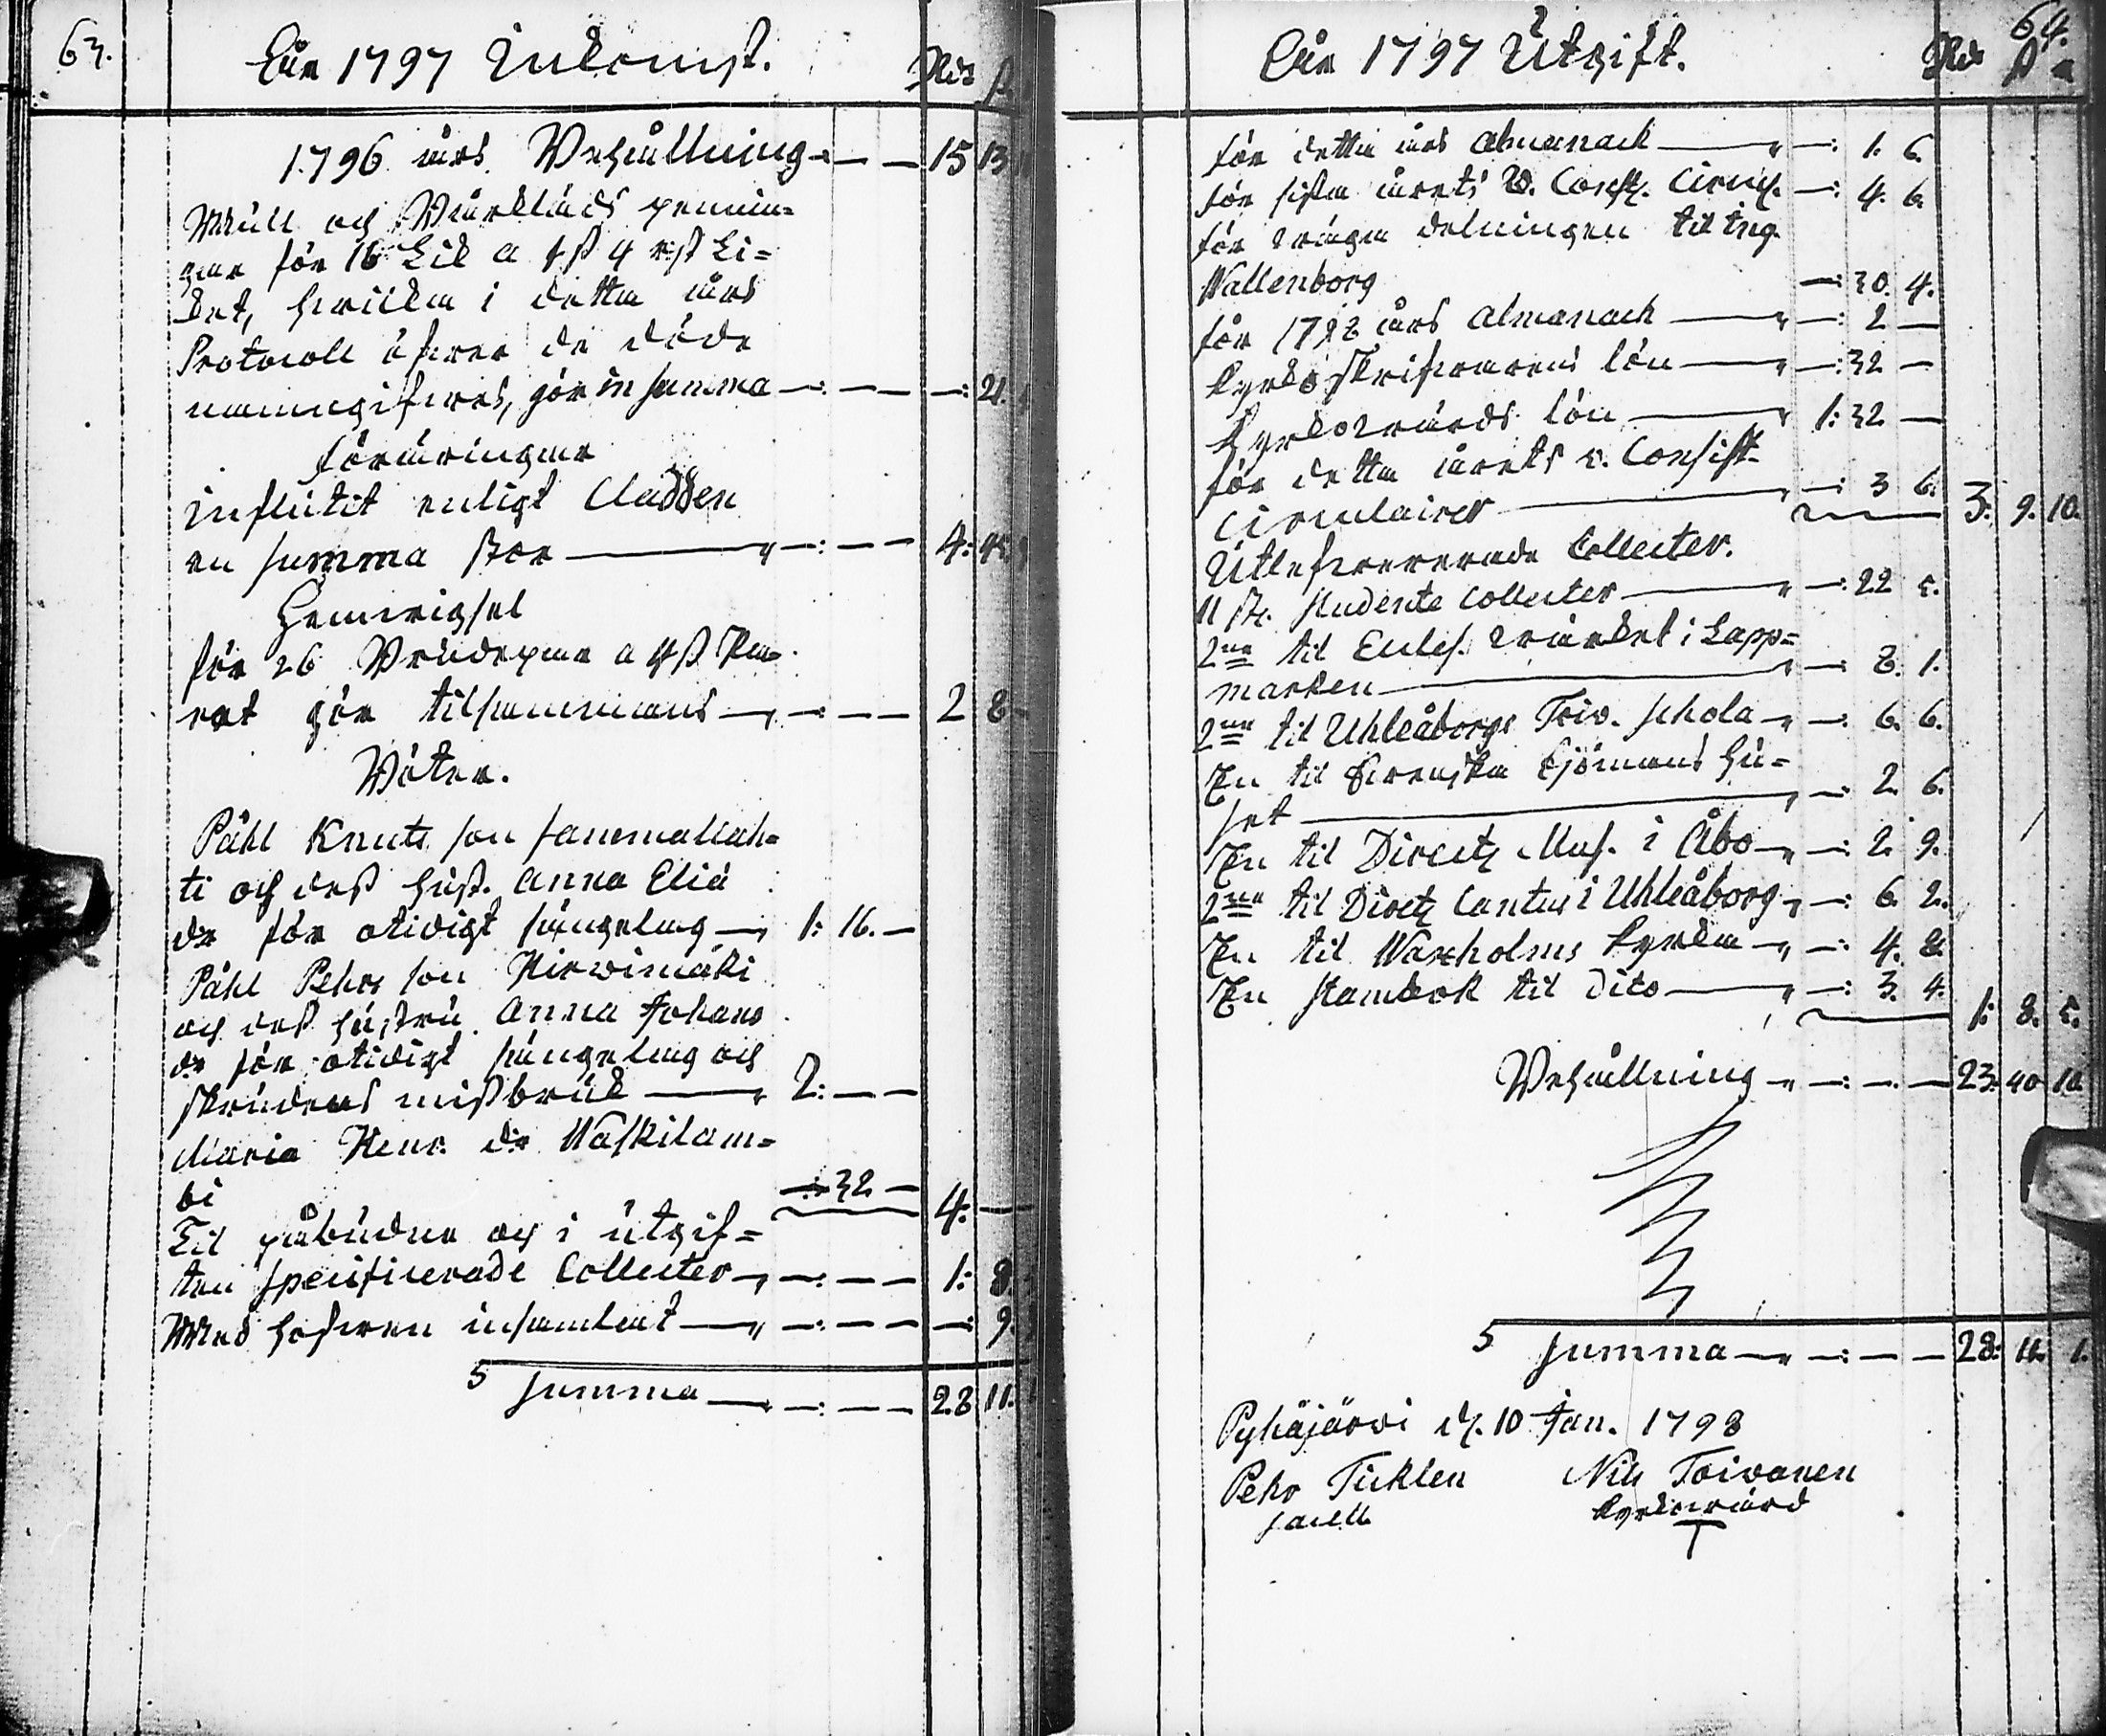 63.
För 1797 Inkomst.
Rdr ß
1796 års Behållning — 15 13
Mull och Bårkläds pennin=
gar för 16 Lik a 1 ß 4 rst Li=
ket, hwilka i detta års
Protocoll öfwer de döde
namngifwes, gör in summa — : — — : 21.
Föräringar
influtit enligt Cladden
en summa stor — : — — 4: 45
Hemvigsel
för 26 Brudepar a 4 ß Pa=
ret gör tilsammans — : — — 2 8
Böter.
Påhl Knuts son Sammallah=
ti och dess hust. Anna Eliæ
dr för otidigt sängelag — 1: 16. —
Påhl Pehrs son Hirwimäki
och dess hustru Anna Johans
dr för otidigt sängelag och
skrudens missbruk — 2: — —
Maria Henr. dr Waskilam=
bi — : 32 — 4: —
Til påbudne och i utgif=
ten specificerade Collecter — : — — 1: 8
Med hofwen insamlat — : — — : 9.
Summa — : — — 28 11.
64.
För 1797 Utgift.
Rdr ß r
för detta års almanack — : 1. 6.
för sista årets V. Consist. Circul. — : 4. 6.
för wägen delningen til Ing.
Wallenborg — : 20. 4.
för 1798 års almanach — : 2 —
Kyrkoskrifwarens lön — : 32 —
Kyrkowärds lön — 1: 32 —
för detta årets v. Consist.
Circulairer — : 3 6. 3: 9. 10.
Utlefwererade Collecter.
11 st. studente Collecter — : 22 5.
2ne til Eccles. wärket i Lapp=
marken — : 8. 1.
2ne til Uhleåborgs Triv. schola — : 6. 6.
En til Swenska Sjömans hu=
set — : 2. 6.
En til Direct. Mus. i Åbo — : 2. 9.
2ne til Direct. Cantus i Uhleåborg — : 6. 2.
En til Waxholms Kyrka — : 4. 8.
En Stambok til dito — : 3. 4. 1: 8. 5.
Behållning — : — — 23: 40 10
Summa — : — — 28: 11. 1.
Pyhäjärvi d. 10 Jan. 1798
Pehr Ticklen Nils Toivonen
Sacell. Kyrkowärd